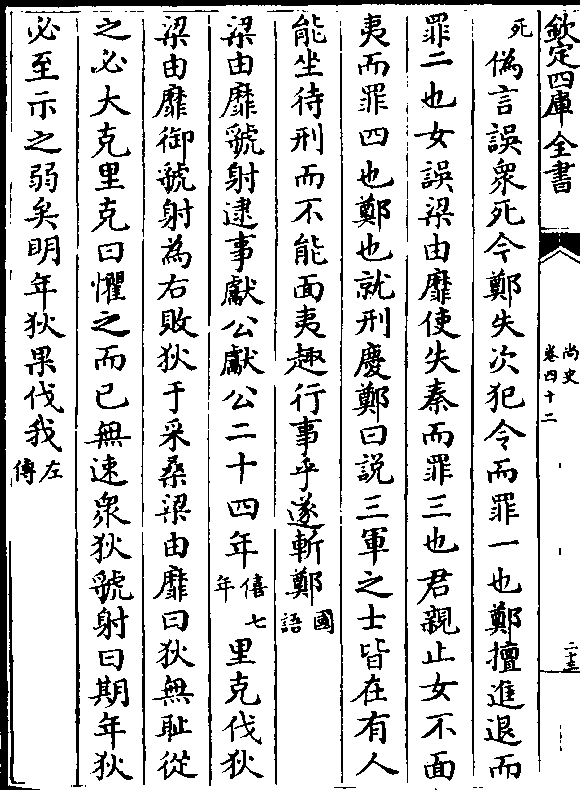 欽定四庫全書
尚史
卷四十二
二十三
死
偽言誤衆死今鄭失次犯令而罪一也鄭擅進退而
罪二也女誤梁由靡使失秦而罪三也君親止女不面
夷而罪四也鄭也就刑慶鄭曰説三軍之士皆在有人
能坐待刑而不能面夷趣行事乎遂斬鄭國語
梁由靡虢射逮事獻公獻公二十四年僖七年里克伐狄
梁由靡御虢射為右敗狄于采桑梁由靡曰狄無耻從
之必大克里克曰懼之而已無速衆狄虢射曰期年狄
必至示之弱矣明年狄果伐我左傳